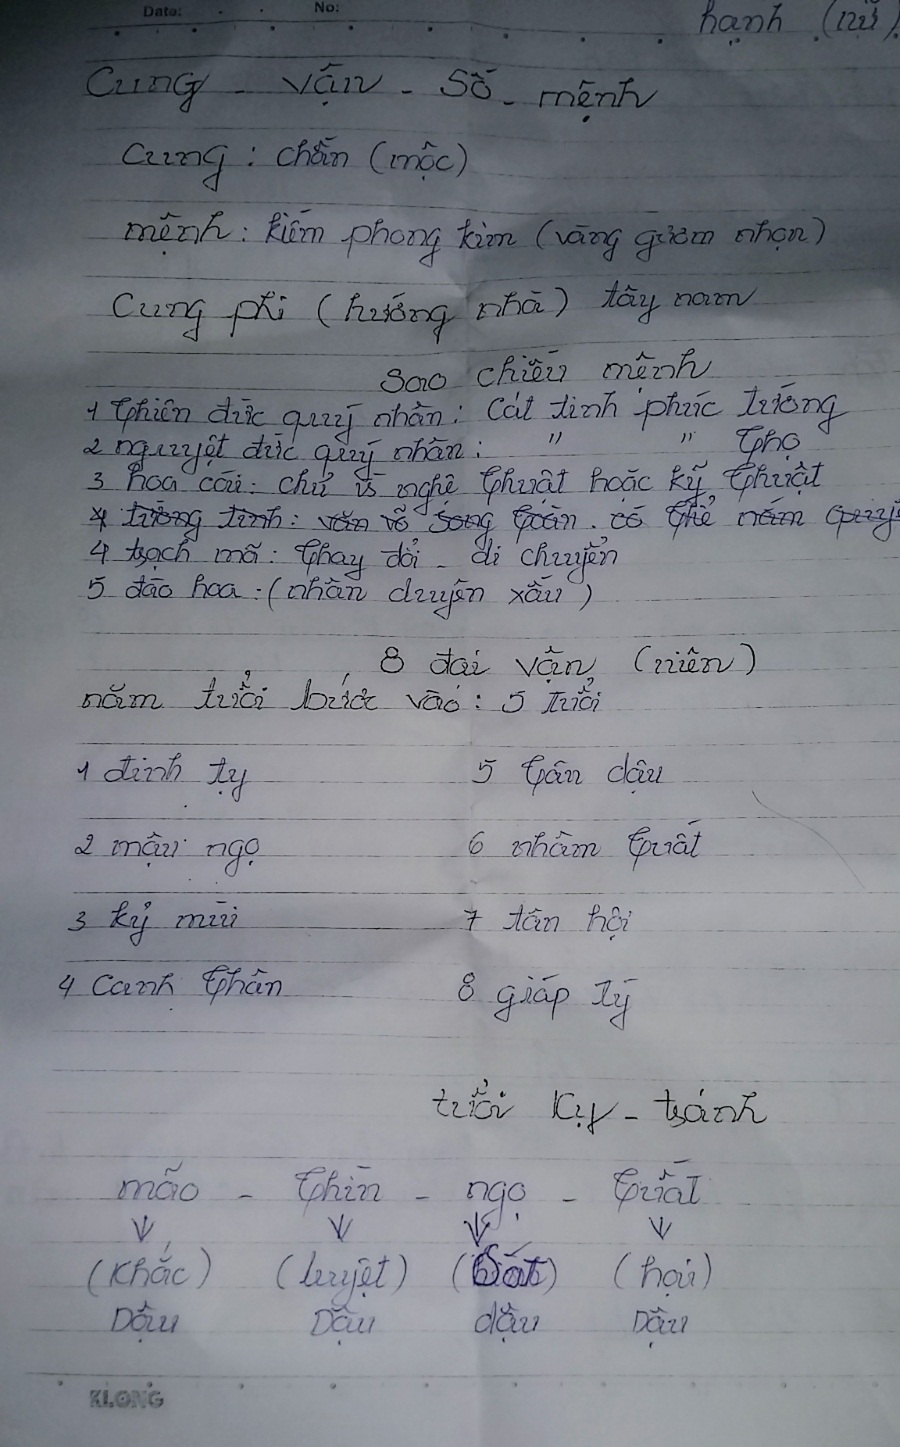 Date: No:
hạnh (nữ)
Cung - vận - Số - mệnh
Cung : chấn (mộc)
mệnh : kiếm phong kim (vàng gươm nhọn)
Cung phi (hướng nhà) tây nam
Sao chiếu mệnh
1 thiên đức quý nhân : Cát tinh phúc tướng
2 nguyệt đức quý nhân : " " thọ
3 hoa cái : chủ về nghệ thuật hoặc kỹ thuật
4 tướng tinh : văn võ song toàn . có thể nắm
4 trạch mã : thay đổi - di chuyển
5 đào hoa : (nhân duyên xấu)
8 đại vận (niên)
năm tuổi bước vào : 5 tuổi
1 đinh tỵ 5 tân dậu
2 mậu ngọ 6 nhâm tuất
3 kỷ mùi 7 tân hội
4 Canh thân 8 giáp tý
tuổi kỵ - tránh
mão - thìn - ngọ - tuất
(khắc) (tuyệt) (hại)
Dậu Dậu dậu Dậu
KLONG